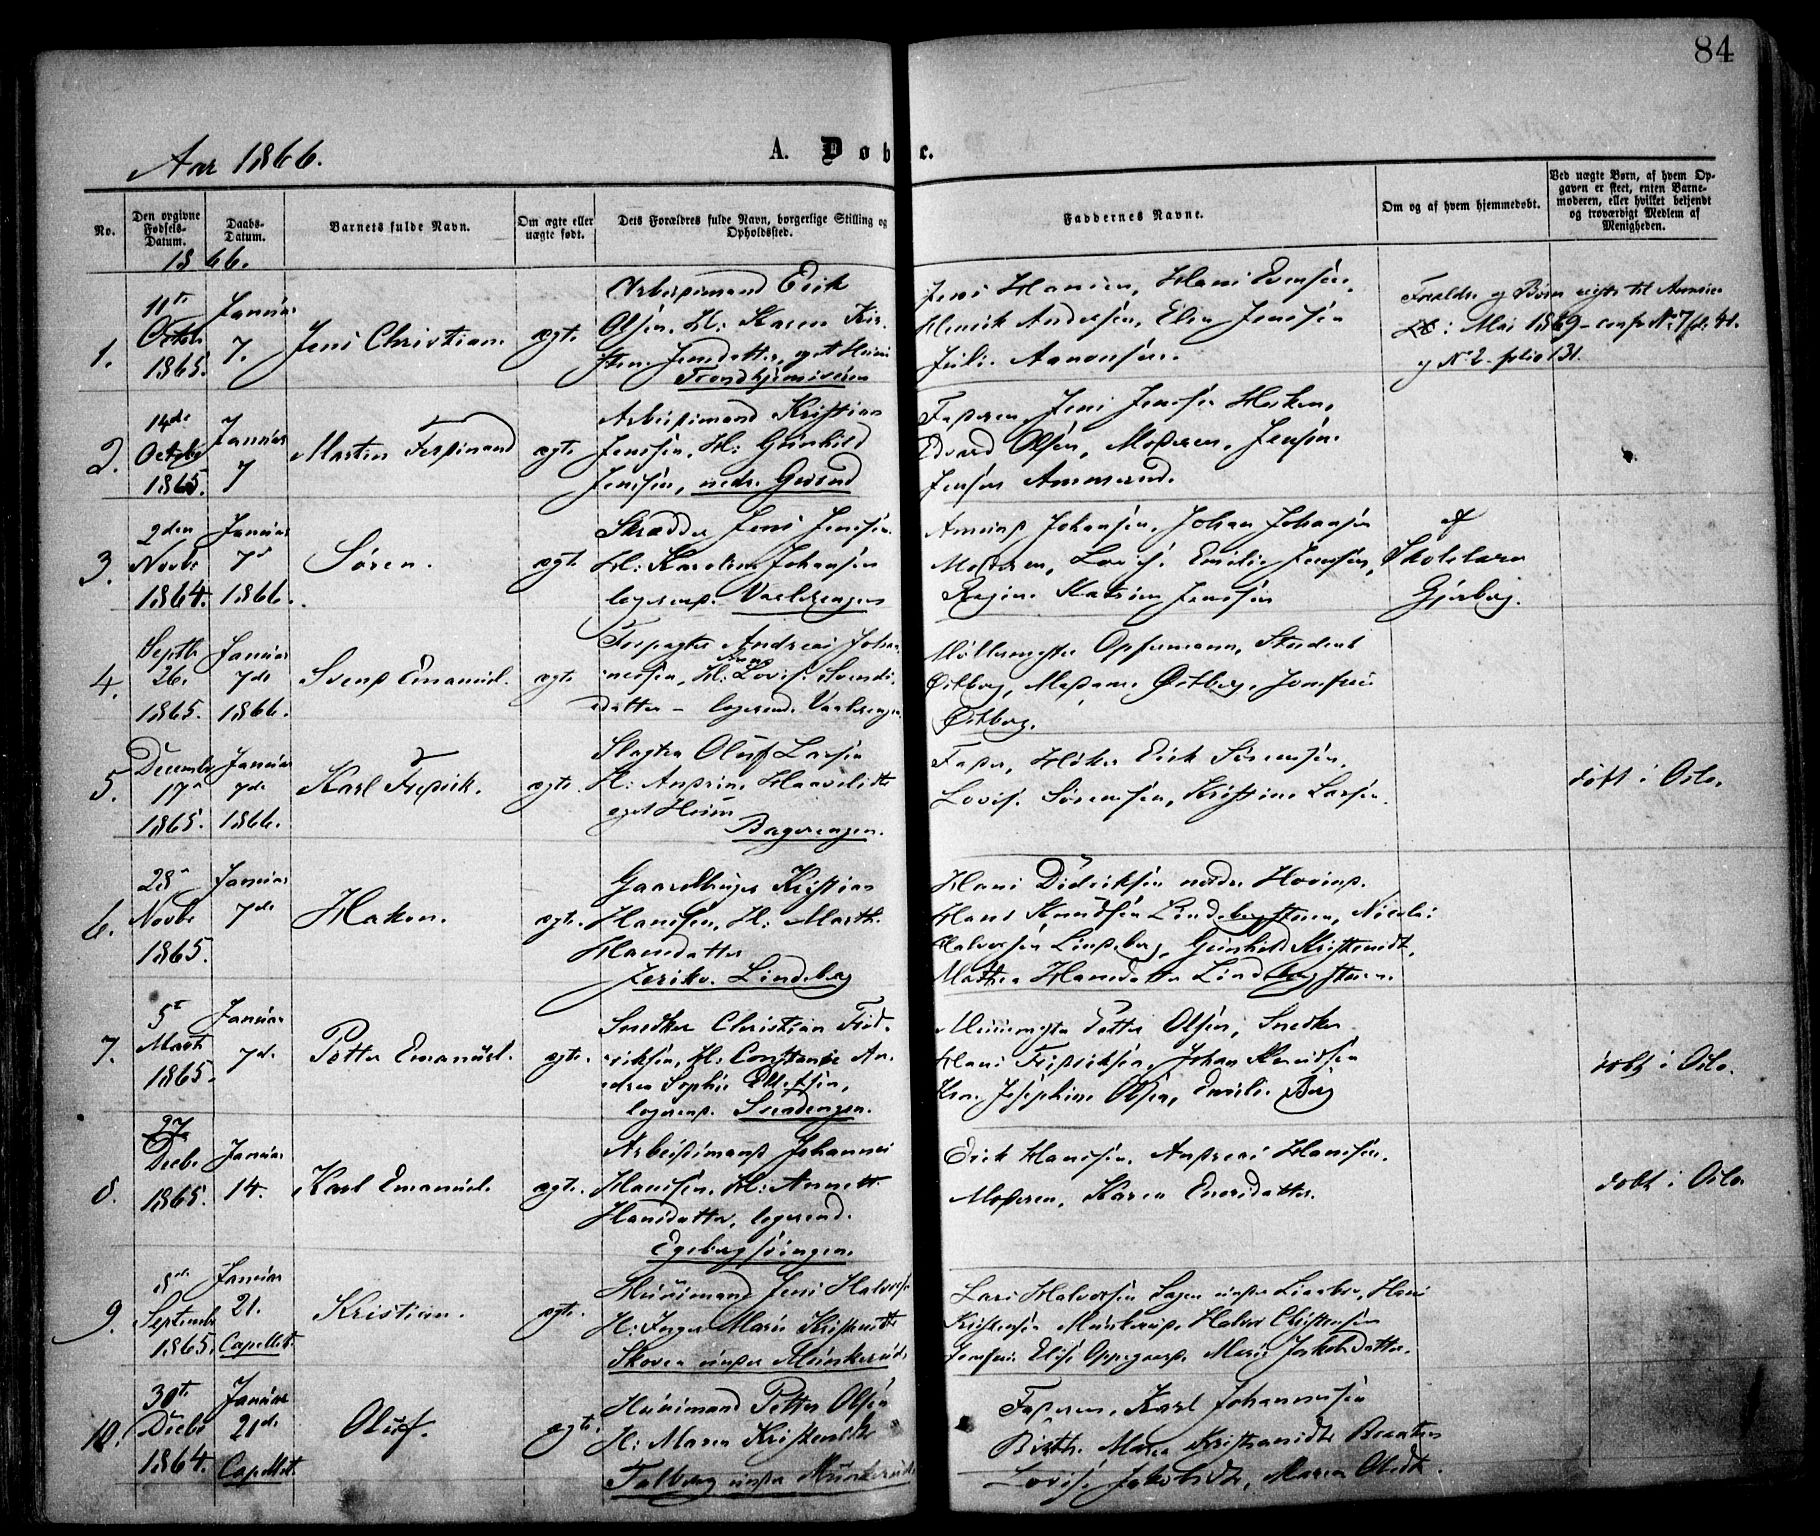 84
Aar 1866.
A. Døbte.
No.
Den opgivne Fødsels-Datum.
Daabs-Datum.
Barnets fulde Navn.
Om ægte eller uægte født.
Dets Forældres fulde Navn, borgerlige Stilling og Opholdssted.
Faddernes Navne.
Om og af hvem hjemmedøbt.
Ved uægte Børn, af hvem Opgaven er skeet, enten Barnemoderen, eller hvilket betjendt og troværdigt Medlem af Menigheden.
1866.
1.
11te Octob. 1865.
Januar 7.
Jens Christian.
ægte
Arbeidsmand Erik
Olsen, H: Karen Kir-
sten Jensdatter, eget Huus
Trondhjemsveien
Jens Hansen, Hans Evensen,
Henrik Andersen, Elen Jensen
Juli Aanonsen.
Forældre og Børn
Mai 1869 - confr No 7 fol. 41.
og No 2 folio 131.
2.
14de Octobr 1865.
Januar 7
Martin Ferdinand
ægte
Arbeidsmand Kristian
Jensen, H: Gunhild
Jensen, nedre Grønd
Faderen, Jens Jensen
Edvard Olsen, Moderen, Jensine
Jensen Ammerud.
3.
2den Novbr 1864.
Januar 7d 1866.
Søren.
ægte
Skrædder Jens Jensen
H: Karoline Johansen
logerend. Vaalerengen
Amund Johansen, Johan Johansen
Moderen, Lovise Emilie Jensen,
Regine Katrine Jensen
af
Skolelærer
Gjerberg.
4.
Septbr 26. 1865.
Januar 7de 1866.
Svend Emanuel.
ægte
Forpagter Andreas Johan-
nesen, H: Lovise Svends-
datter - logerend. Vaalerengen
Møllermester Oppermann, Student
Østberg, Madame Østberg, Jomfru
Østberg.
5.
December 17d 1865.
Januar 7de 1866.
Karl Fredrik.
ægte.
Slagter Oluf Larsen
H: Andrine Haavelsdtr
eget Huus
Bagerengen.
Fader, Høker Erik Sørensen,
Lovise Sørensen, Kristine Larsen.
døbt i Oslo.
6.
28d Novbr 1865.
Januar 7de
Hakon.
ægte.
Gaardbruger Kristian
Hansen, H: Marthe
Hansdatter
Jeriko Lindeberg
Hans Didriksen nordre Hovind.
Hans Knudsen Lindebergsteen, Nicolai
Halvorsen Lindeberg, Gunhild Kristensdt.
Mathea Hansdatter Lindebergsteen.
7.
5te Marts 1865.
Januar 7de
Petter Emanuel.
ægte.
Snedker Christian Fred-
riksen, H: Constance An-
drea Sophie Ellefsen,
logerend. Svendengen.
Muurmester Petter Olsen, Snedker
Hans Fredriksen, Johan Knudsen
Josephine Olsen, Emilie Berg
døbt i Oslo.
8.
27 Decbr 1865.
Januar 14.
Karl Emanuel.
ægte.
Arbeidsmand Johannes
Hansen. H: Annette
Hansdatter, logerend.
Egebergsvingen.
Erik Hansen, Andreas Hansen.
Moderen, Karen Eversdatter.
døbt i Oslo.
9.
8de Septembr 1865.
Januar 21. Capellet.
Kristian.
ægte.
Huusmand Jens Halvorsen
H: Inger Marie Kristensdt
Skoven under Munkerud.
Lars Halvorsen Sagen under Liaabro, Hans
Kristensen Munkerud, Halvor Christensen
Jomfrue Elise Oppegaard, Marie Jakobsdatter.
10.
30te Decbr 1864.
Januar 21de Capellet.
Oluf.
ægte.
Huusmand Petter Olsen
H: Maren Kristensdtr
Talberg under Munkerud.
Faderen, Karl Johannesen
Birthe Marie Kristiansdtr
Lovise Jakobsdtr, Maren Olsdtr.